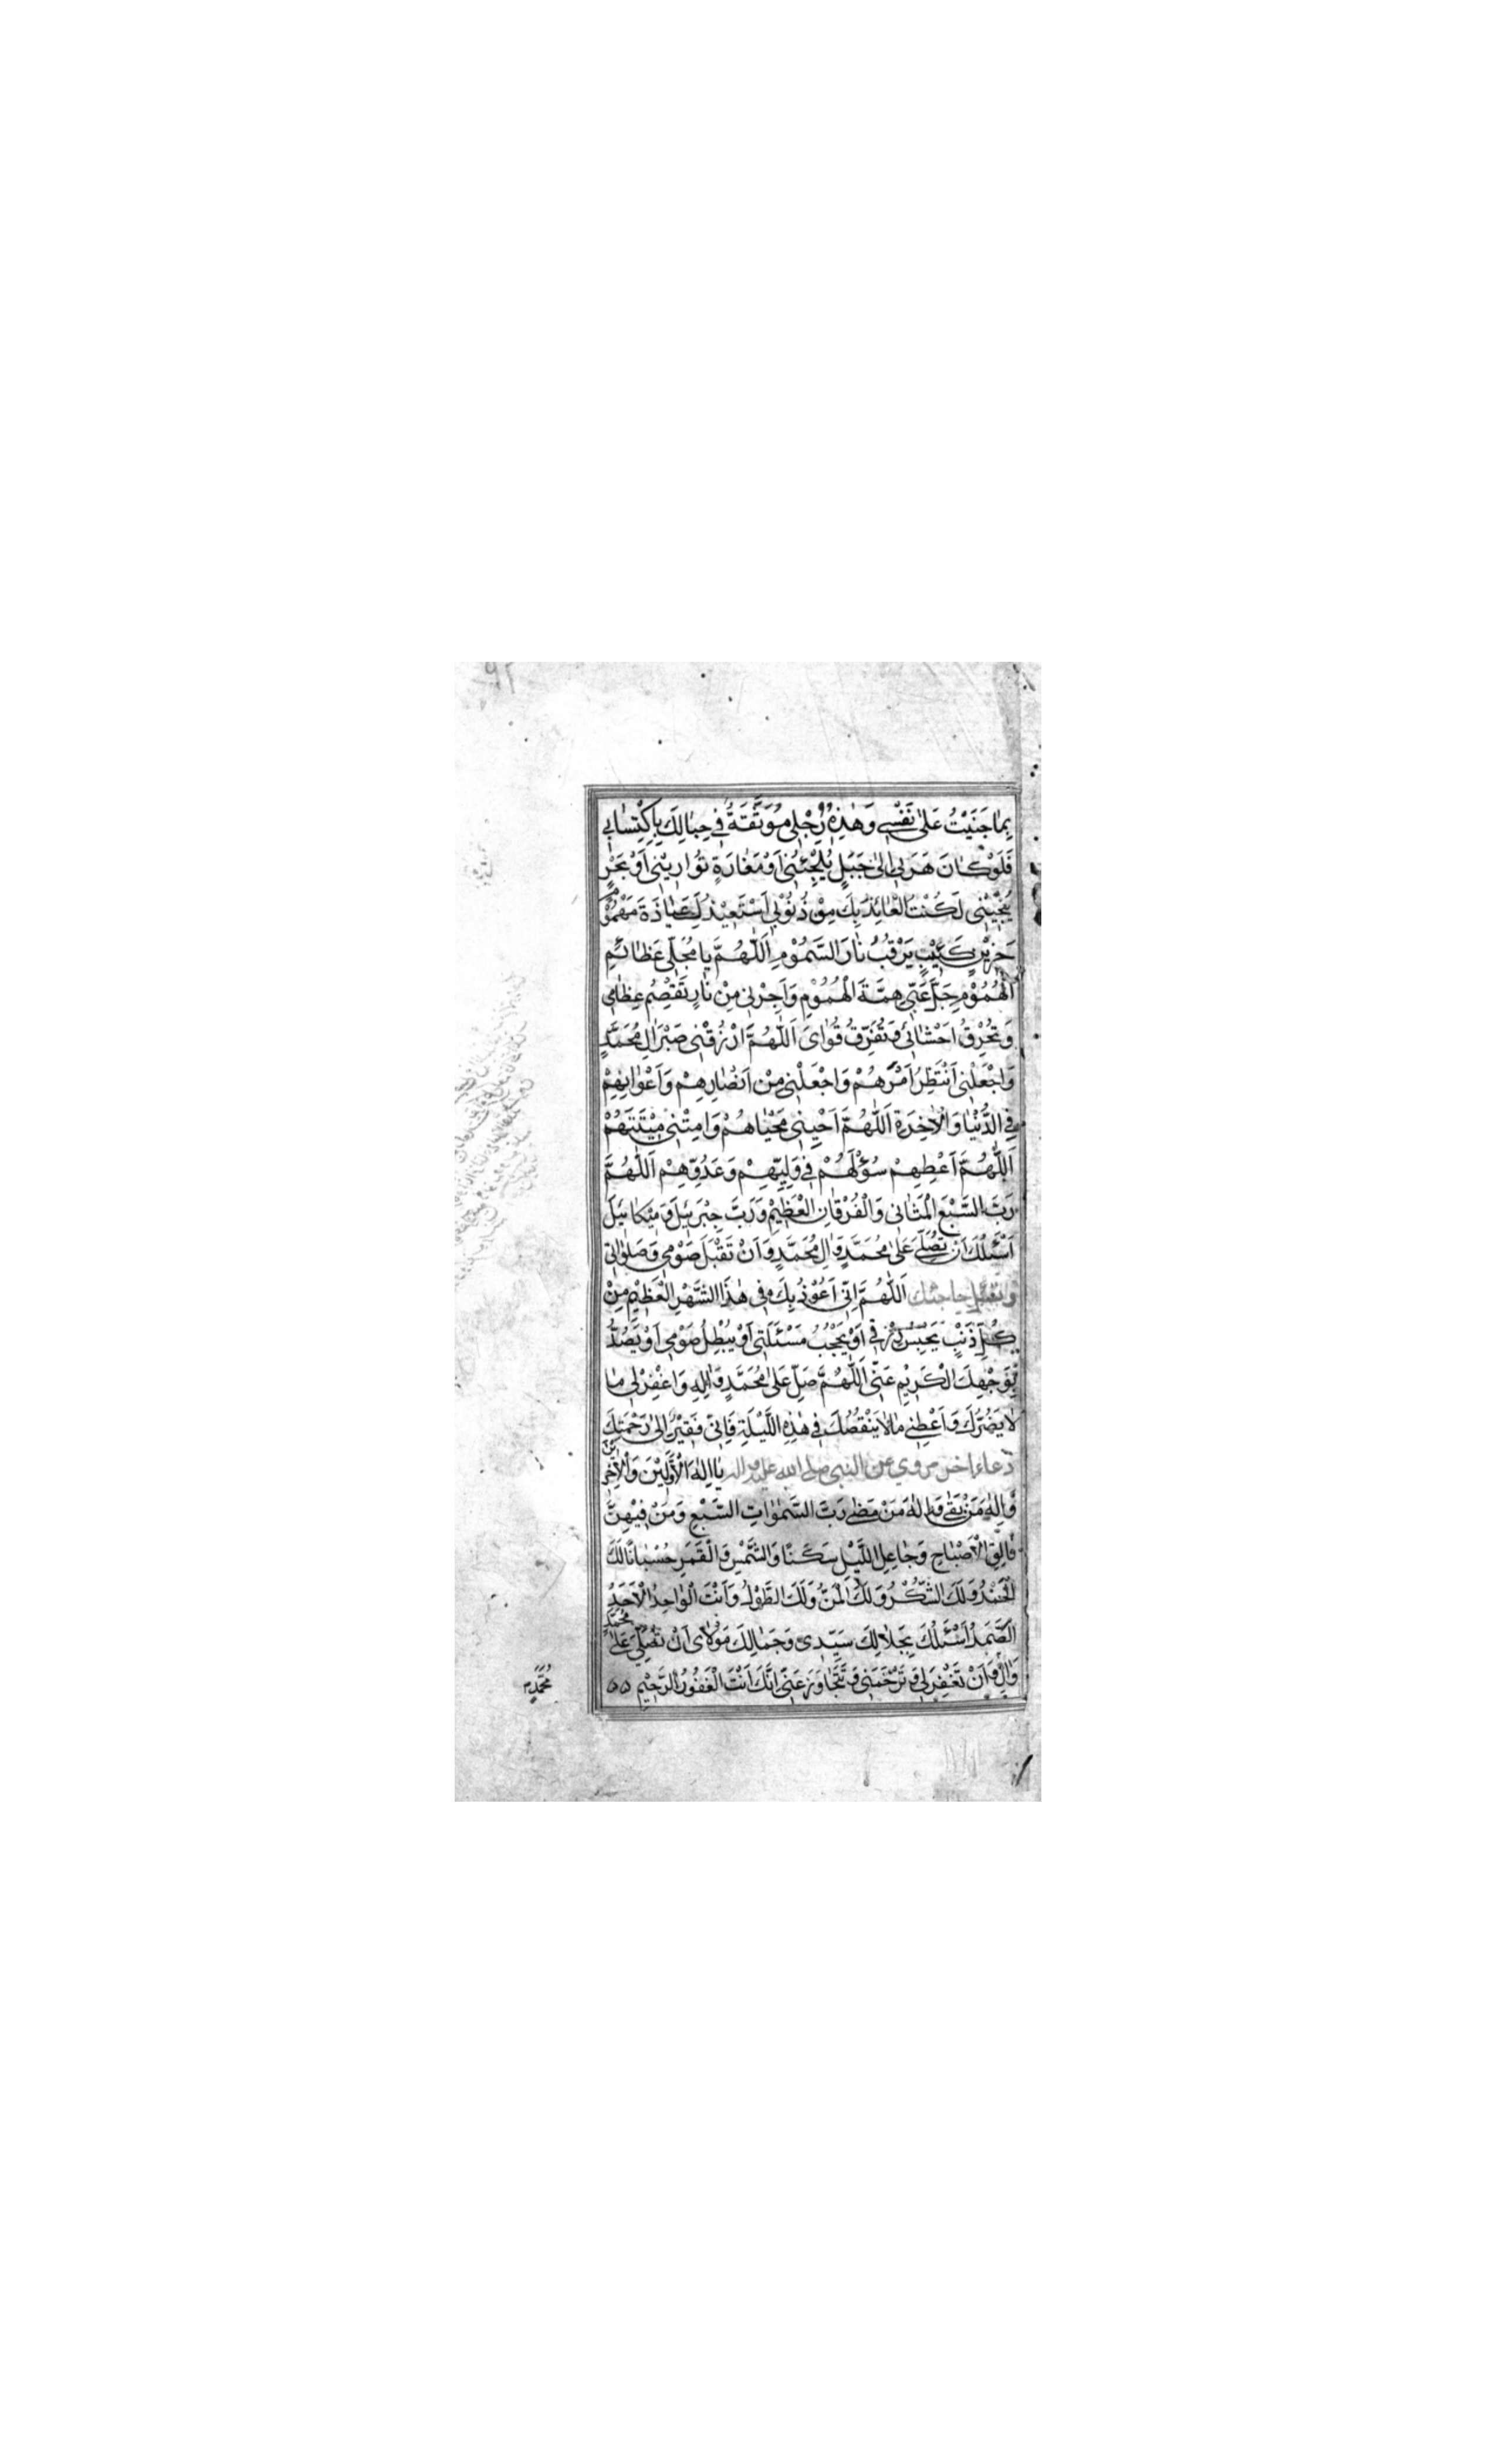 بِمَا جَنَيْتُ عَلٰى نَفْسِي وَهٰذِهِ رِجْلِي مُوَثَّقَةٌ فِي حِبَالِكَ بِاِكْتِسَابِي
فَلَوْ كَانَ هَرَبِي اِلٰى جَبَلٍ يُلْجِئُنِي اَوْ مَغَارَةٍ تُوَارِيْنِي اَوْ بَحْرٍ
يُنْجِيْنِي لَكُنْتُ الْعَائِذَ بِكَ مِنْ ذُنُوْبِي اَسْتَعِيْذُكَ عِيَاذَةَ مَهْمُوْمٍ
حَزِيْنٍ كَئِيْبٍ يَرْقُبُ نَارَ السَّمُوْمِ اَللّٰهُمَّ يَا مُجَلِّيَ عَظَائِمِ
الْهُمُوْمِ جَلِّ عَنِّي هِمَّةَ الْهُمُوْمِ وَاَجِرْنِي مِنْ نَارٍ تَقْصِمُ عِظَامِي
وَتُحْرِقُ اَحْشَائِي وَتُفَرِّقُ قُوَايَ اَللّٰهُمَّ ارْزُقْنِي صَبْرَ اٰلِ مُحَمَّدٍ
وَاجْعَلْنِي اَنْتَظِرُ اَمْرَهُمْ وَاجْعَلْنِي مِنْ اَنْصَارِهِمْ وَاَعْوَانِهِمْ
فِي الدُّنْيَا وَالْاٰخِرَةِ اَللّٰهُمَّ اَحْيِنِي مَحْيَاهُمْ وَاَمِتْنِي مِيْتَتَهُمْ
اَللّٰهُمَّ اَعْطِهِمْ سُؤْلَهُمْ فِي وَلِيِّهِمْ وَعَدُوِّهِمْ اَللّٰهُمَّ
رَبَّ السَّبْعِ الْمَثَانِي وَالْفُرْقَانِ الْعَظِيْمِ وَرَبَّ جِبْرَئِيلَ وَمِيْكَائِيلَ
اَسْئَلُكَ اَنْ تُصَلِّيَ عَلٰى مُحَمَّدٍ وَاٰلِ مُحَمَّدٍ وَاَنْ تَقْبَلَ صَوْمِي وَصَلٰوتِي
وتسئل حاجتك اَللّٰهُمَّ اِنِّي اَعُوْذُ بِكَ فِي هٰذَا الشَّهْرِ الْعَظِيْمِ مِنْ
كُلِّ ذَنْبٍ يَحْبِسُ رِزْقِي اَوْ يَحْجُبُ مَسْئَلَتِي اَوْ يُبْطِلُ صَوْمِي اَوْ يَصُدُّ
بِوَجْهِكَ الْكَرِيْمِ عَنِّي اَللّٰهُمَّ صَلِّ عَلٰى مُحَمَّدٍ وَاٰلِهِ وَاغْفِرْ لِي مَا
لَا يَضُرُّكَ وَاَعْطِنِي مَا لَا يَنْقُصُكَ فِي هٰذِهِ اللَّيْلَةِ فَاِنِّي فَقِيْرٌ اِلٰى رَحْمَتِكَ
دعاء اخر مروي عن النبي صلى الله عليه واله يَا اِلٰهَ الْاَوَّلِيْنَ وَالْاٰخِرِيْنَ
وَاِلٰهَ مَنْ بَقِيَ وَاِلٰهَ مَنْ مَضٰى رَبَّ السَّمٰوَاتِ السَّبْعِ وَمَنْ فِيْهِنَّ
فَالِقَ الْاِصْبَاحِ وَجَاعِلَ اللَّيْلِ سَكَنًا وَالشَّمْسِ وَالْقَمَرِ حُسْبَانًا لَكَ
الْحَمْدُ وَلَكَ الشُّكْرُ وَلَكَ الْمَنُّ وَلَكَ الطَّوْلُ وَاَنْتَ الْوَاحِدُ الْاَحَدُ
الصَّمَدُ اَسْئَلُكَ بِجَلَالِكَ سَيِّدِي وَجَمَالِكَ مَوْلَايَ اَنْ تُصَلِّيَ عَلٰى مُحَمَّدٍ
وَاٰلِهِ وَاَنْ تَغْفِرَ لِي وَتَرْحَمَنِي وَتَتَجَاوَزَ عَنِّي اِنَّكَ اَنْتَ الْغَفُوْرُ الرَّحِيْمُ
مُحَمَّدٍ